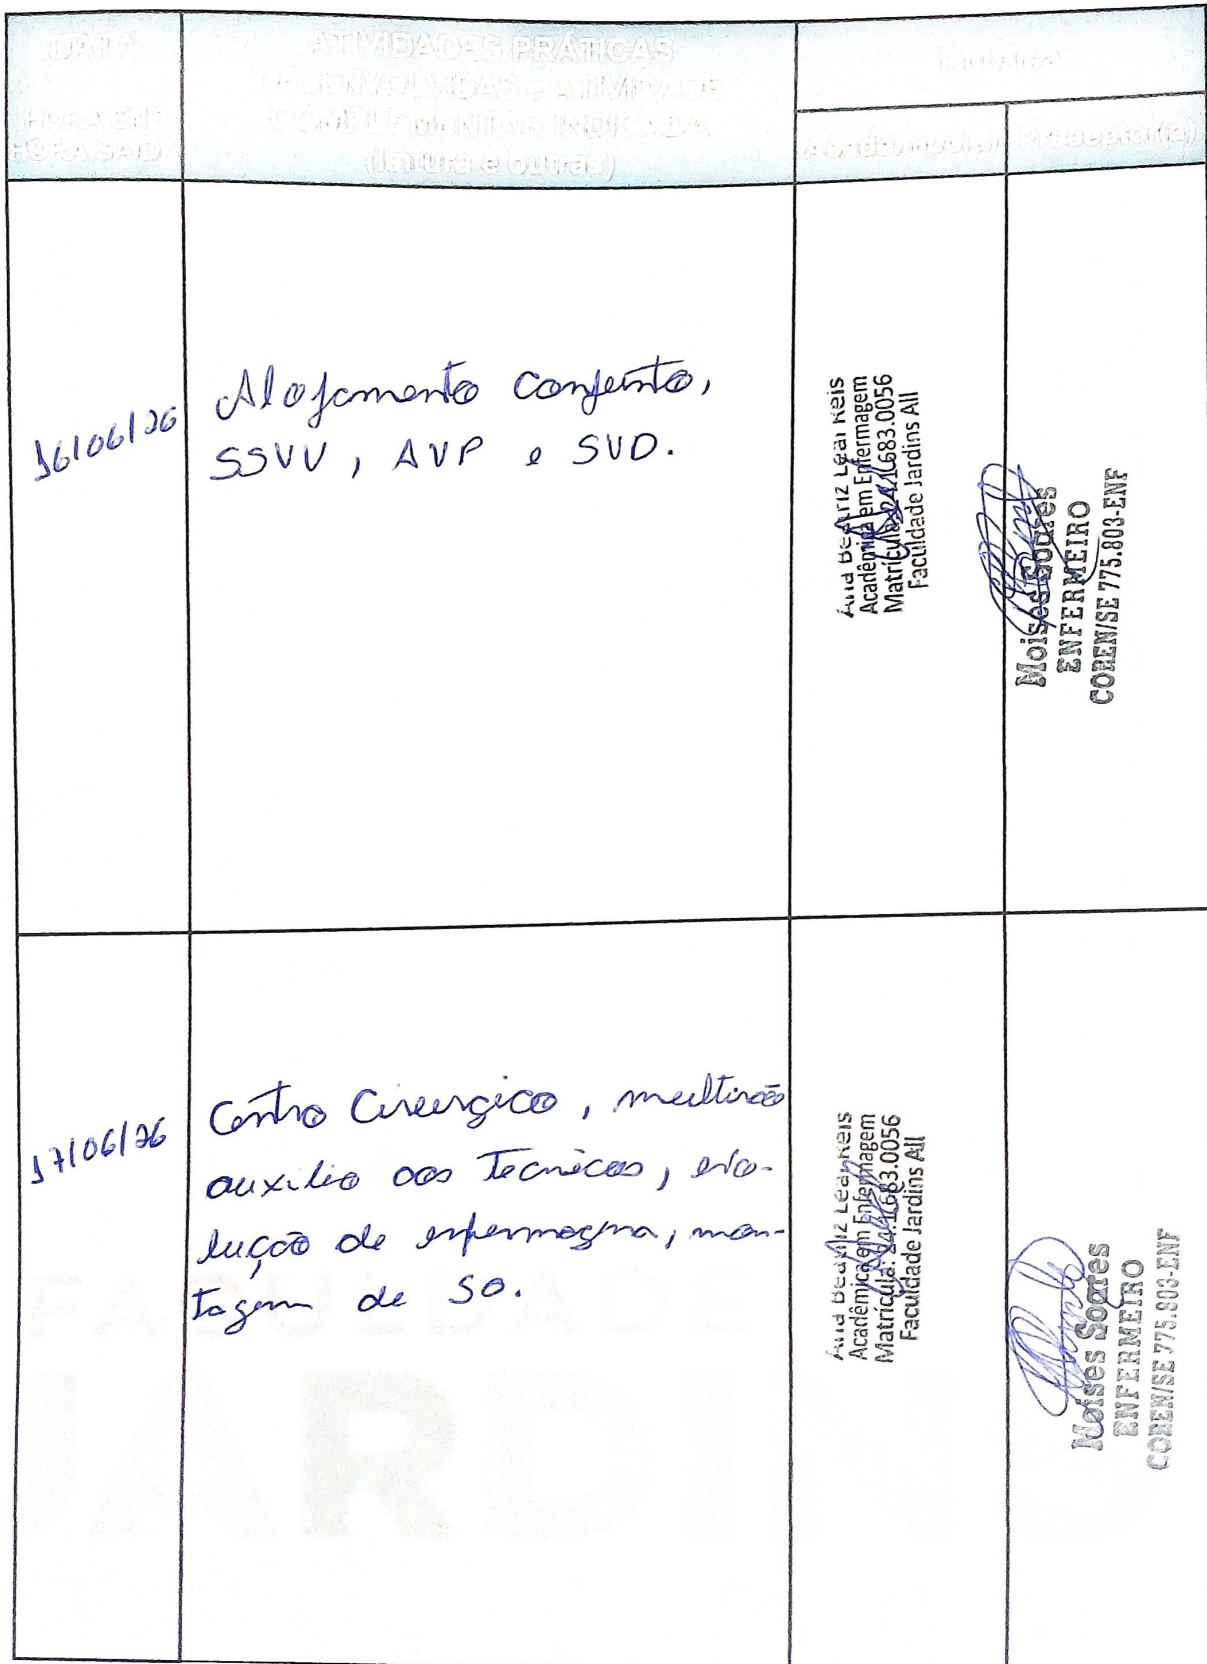 DATA
HORA ENT
HORA SAÍD
ATIVIDADES PRÁTICAS
DESENVOLVIDAS E ATIVIDADE
COMPLEMENTAR INDICADA
(leitura e outras)
Acadêmico(a)
Preceptor(a)
16/06/26
Alojamento conjunto,
SSVV, AVP e SVD.
Ana Beatriz Leal Reis
Acadêmica em Enfermagem
Matrícula: 24.1.683.0056
Faculdade Jardins All
Moises Soares
ENFERMEIRO
COREN/SE 775.803-ENF
17/06/26
Centro Cirurgico, multirão
auxilio aos Tecnicos, evo-
lução de enfermagem, mon-
tagem de SO.
Ana Beatriz Leal Reis
Acadêmica em Enfermagem
Matrícula: 24.1.683.0056
Faculdade Jardins All
Moises Soares
ENFERMEIRO
COREN/SE 775.803-ENF
FACULDADE
JARDINS